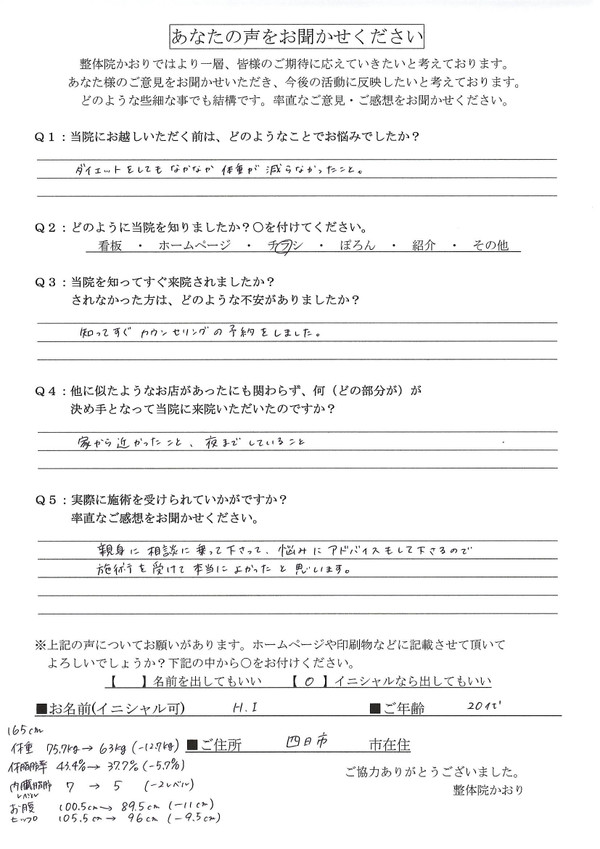 あなたの声をお聞かせください
整体院かおりではより一層、皆様のご期待に応えていきたいと考えております。
あなた様のご意見をお聞かせいただき、今後の活動に反映したいと考えております。
どのような些細な事でも結構です。率直なご意見・ご感想をお聞かせください。
Q1：当院にお越しいただく前は、どのようなことでお悩みでしたか？
ダイエットをしてもなかなか体重が減らなかったこと。
Q2：どのように当院を知りましたか？〇を付けてください。
看板 ・ ホームページ ・ チラシ ・ ぽろん ・ 紹介 ・ その他
Q3：当院を知ってすぐ来院されましたか？
されなかった方は、どのような不安がありましたか？
知ってすぐカウンセリングの予約をしました。
Q4：他に似たようなお店があったにも関わらず、何（どの部分が）が
決め手となって当院に来院いただいたのですか？
家から近かったこと、夜までしていること
Q5：実際に施術を受けられていかがですか？
率直なご感想をお聞かせください。
親身に相談に乗って下さって、悩みにアドバイスもして下さるので
施術を受けて本当によかったと思います。
※上記の声についてお願いがあります。ホームページや印刷物などに記載させて頂いて
よろしいでしょうか？下記の中から〇をお付けください。
【　】名前を出してもいい 【 〇 】イニシャルなら出してもいい
■お名前(イニシャル可) H.I ■ご年齢 20代
165cm
体重 75.7kg → 63kg (-12.7kg) ■ご住所 四日市 市在住
体脂肪率 43.4% → 37.7% (-5.7%)
ご協力ありがとうございました。
内臓脂肪レベル 7 → 5 (-2レベル)
整体院かおり
お腹 100.5cm → 89.5cm (-11cm)
ヒップ 105.5cm → 96cm (-9.5cm)